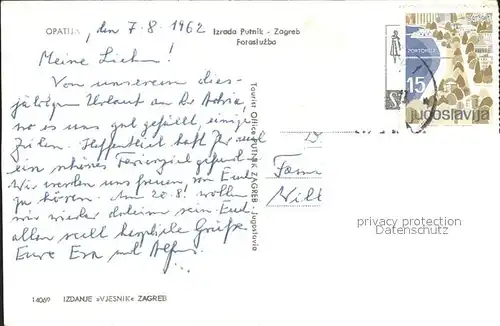 OPATIJA, den 7.8.1962
Izrada Putnik - Zagreb
Fotoslužba
Meine Lieben!
Von unserem dies-
jährigen Urlaut an der Adria,
wo es uns gut gefällt, einige
Zeilen. Hoffentlich habt Ihr auch
ein schönes Ferienziel gefunden.
Wir werden uns freuen von Euch
zu hören. Am 20.8. wollen
wir wieder daheim sein. Euch
allen recht herzliche Grüße
Eure Eva und
Tourist Office PUTNIK ZAGREB Jugoslavia
PORTOROŽ
15
jugoslavija
Fam
privacy protection
DarkArtists.com
14069 IZDANJE »VJESNIK« ZAGREB